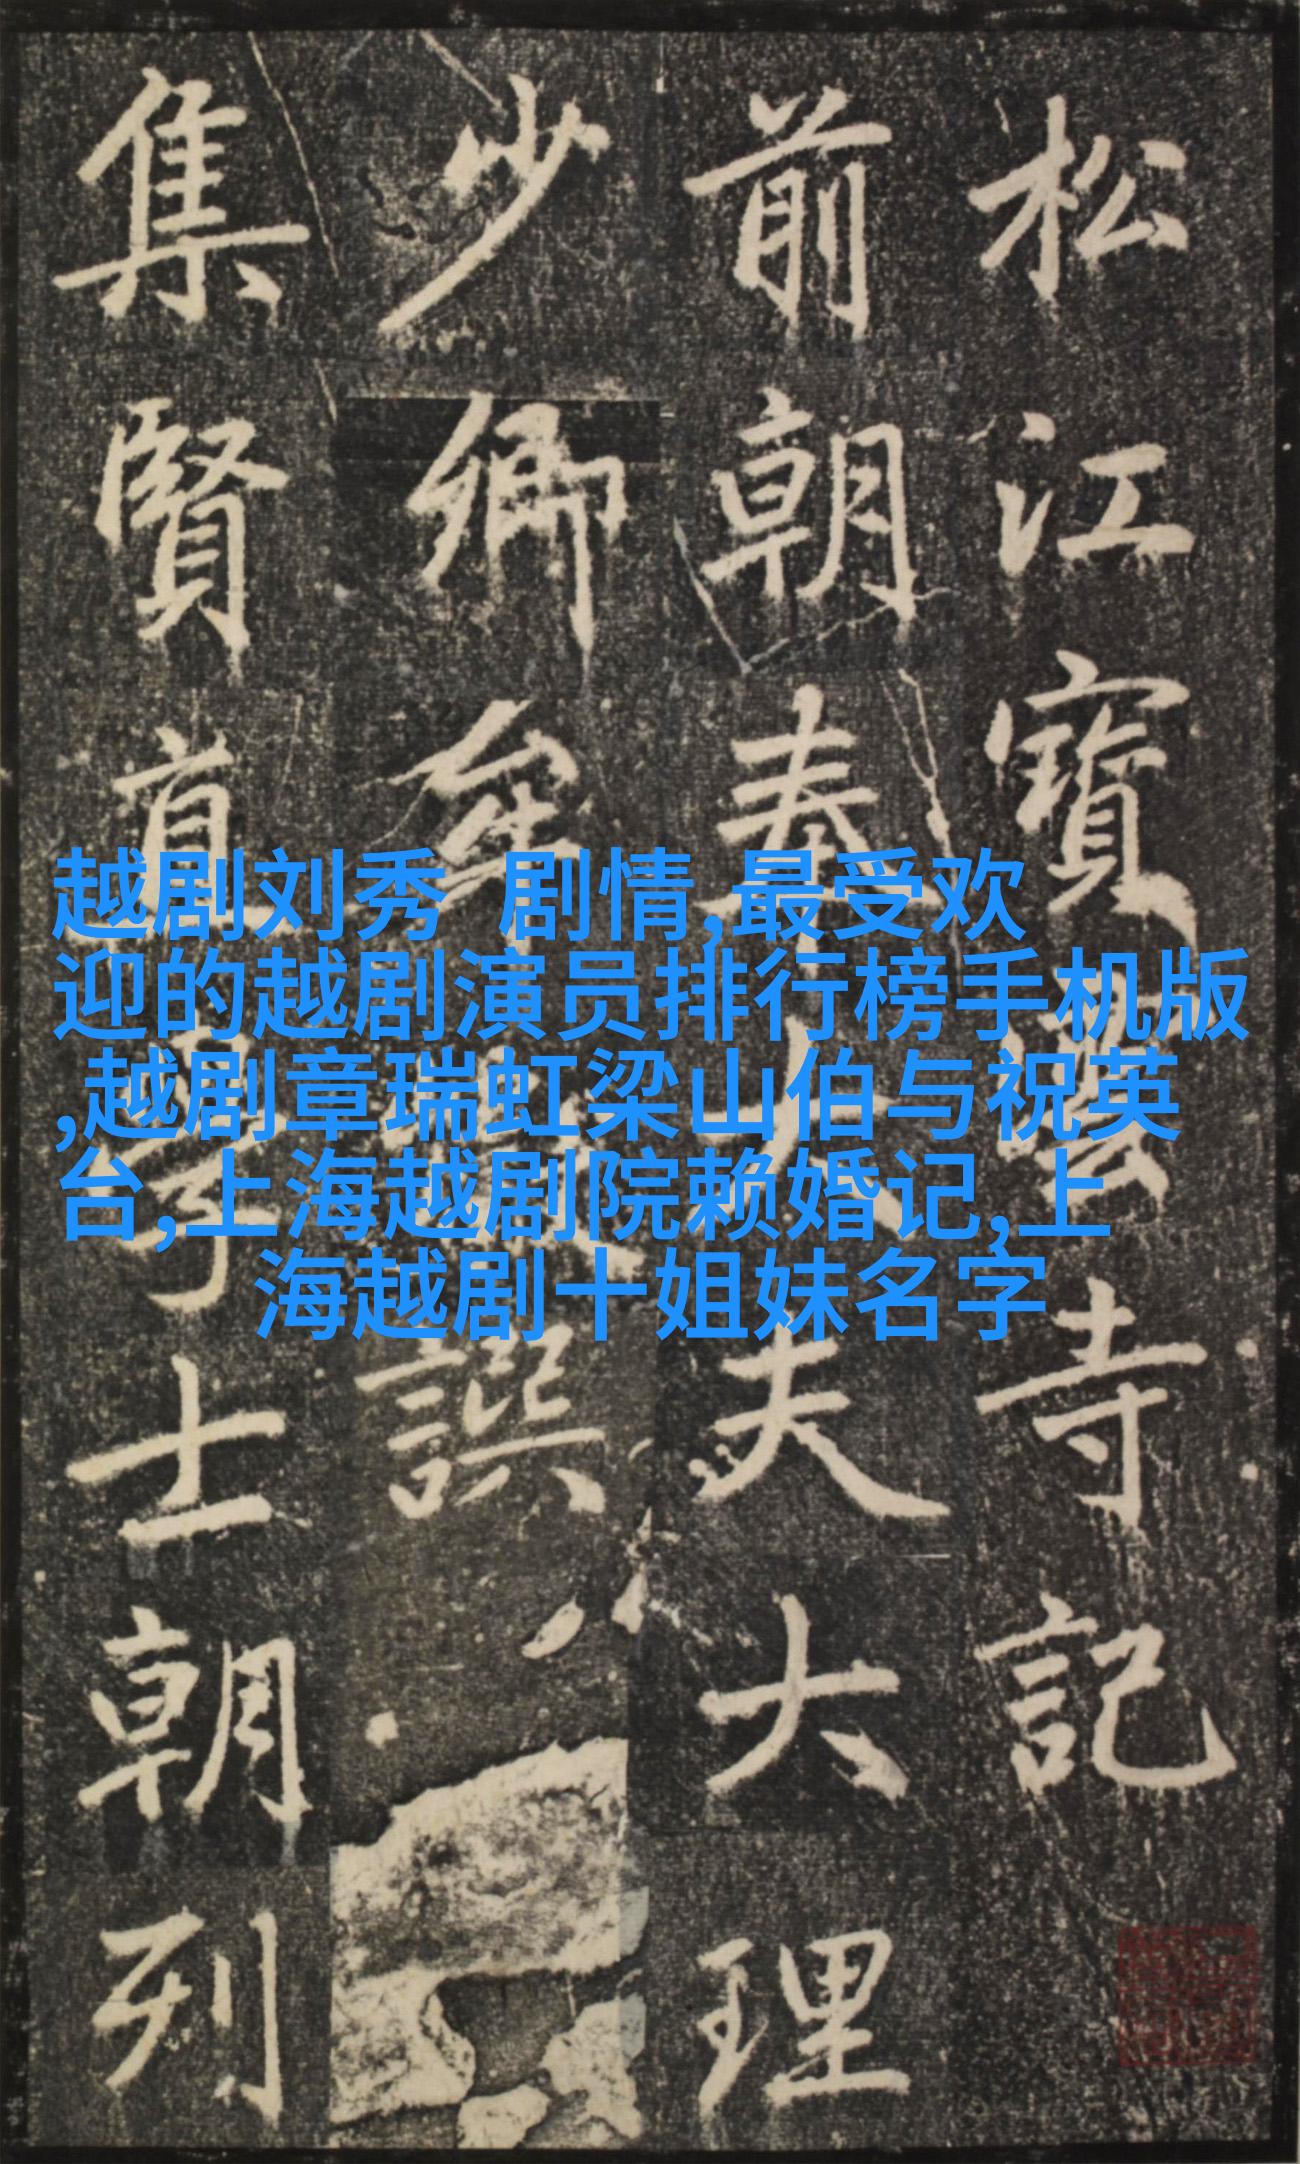 松江寶雲寺記
前朝奉大夫大理
少卿牟譔
集賢直學士朝列
越剧刘秀 剧情,最受欢
迎的越剧演员排行榜手机版
,越剧章瑞虹梁山伯与祝英
台,上海越剧院赖婚记,上
海越剧十姐妹名字